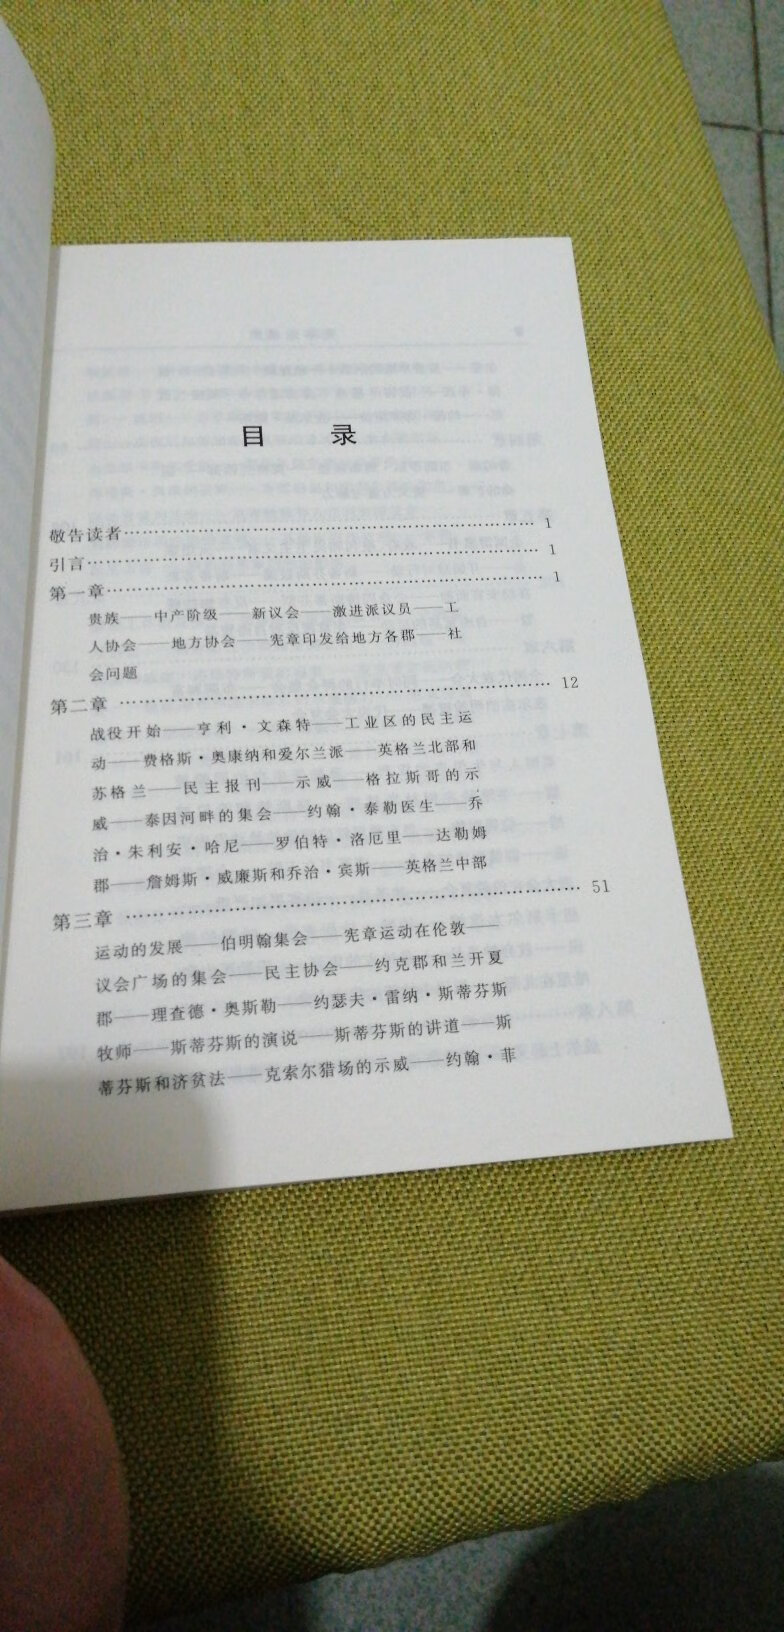 目 录
敬告读者……………………………………………………………… 1
引言…………………………………………………………………… 1
第一章………………………………………………………………… 1
贵族——中产阶级——新议会——激进派议员——工
人协会——地方协会——宪章印发给地方各郡——社
会问题
第二章 ……………………………………………………………… 12
战役开始——亨利·文森特——工业区的民主运
动——费格斯·奥康纳和爱尔兰派——英格兰北部和
苏格兰——民主报刊——示威——格拉斯哥的示
威——泰因河畔的集会——约翰·泰勒医生——乔
治·朱利安·哈尼——罗伯特·洛厄里——达勒姆
郡——詹姆斯·威廉斯和乔治·宾斯——英格兰中部
第三章 ……………………………………………………………… 51
运动的发展——伯明翰集会——宪章运动在伦敦——
议会广场的集会——民主协会——约克郡和兰开夏
郡——理查德·奥斯勒——约瑟夫·雷纳·斯蒂芬斯
牧师——斯蒂芬斯的演说——斯蒂芬斯的讲道——斯
蒂芬斯和济贫法——克索尔猎场的示威——约翰·菲